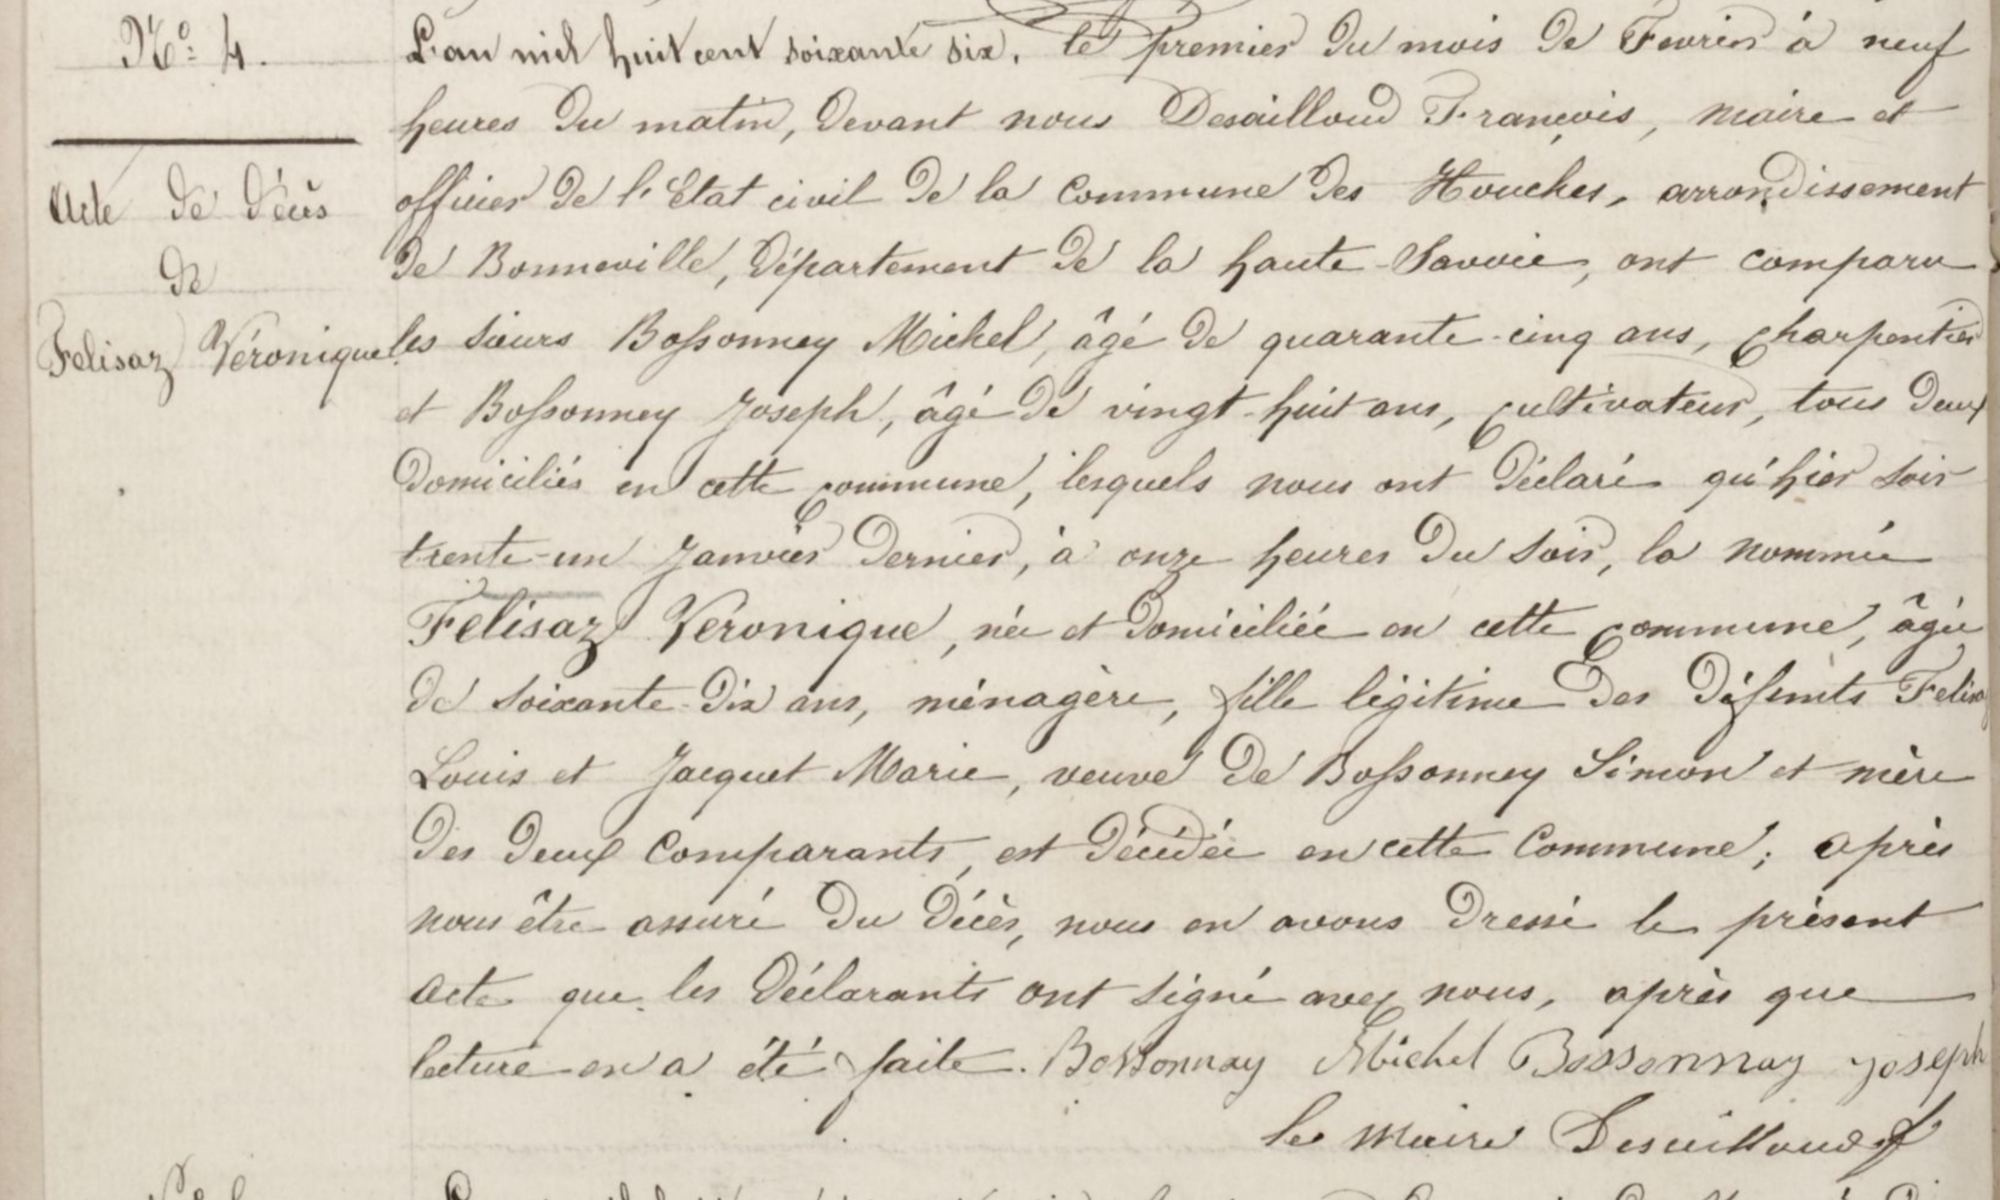 N.º 4.
Acte de décès
de
Felisaz Véronique
L'an mil huit cent soixante six, le premier du mois de Fevrier à neuf
heures du matin, devant nous Desailloud François, maire et
officier de l'Etat civil de la Commune des Houches, arrondissement
de Bonneville, département de la haute-Savoie, ont comparu
les sieurs Bossonney Michel, âgé de quarante-cinq ans, charpentier
et Bossonney Joseph, âgé de vingt-huit ans, cultivateur, tous deux
domiciliés en cette commune, lesquels nous ont déclaré qu'hier soir
trente-un Janvier dernier, à onze heures du soir, la nommée
Felisaz Véronique, née et domiciliée en cette commune, âgée
de soixante-dix ans, ménagère, fille légitime des défunts Felisaz
Louis et Jacquet Marie, veuve de Bossonney Simon et mère
des deux Comparants, est décédée en cette Commune; après
nous être assuré du décès, nous en avons dressé le présent
acte que les déclarants ont signé avec nous, après que
lecture en a été faite. Bossonnay Michel Bossonnay joseph
le Maire Desailloud f